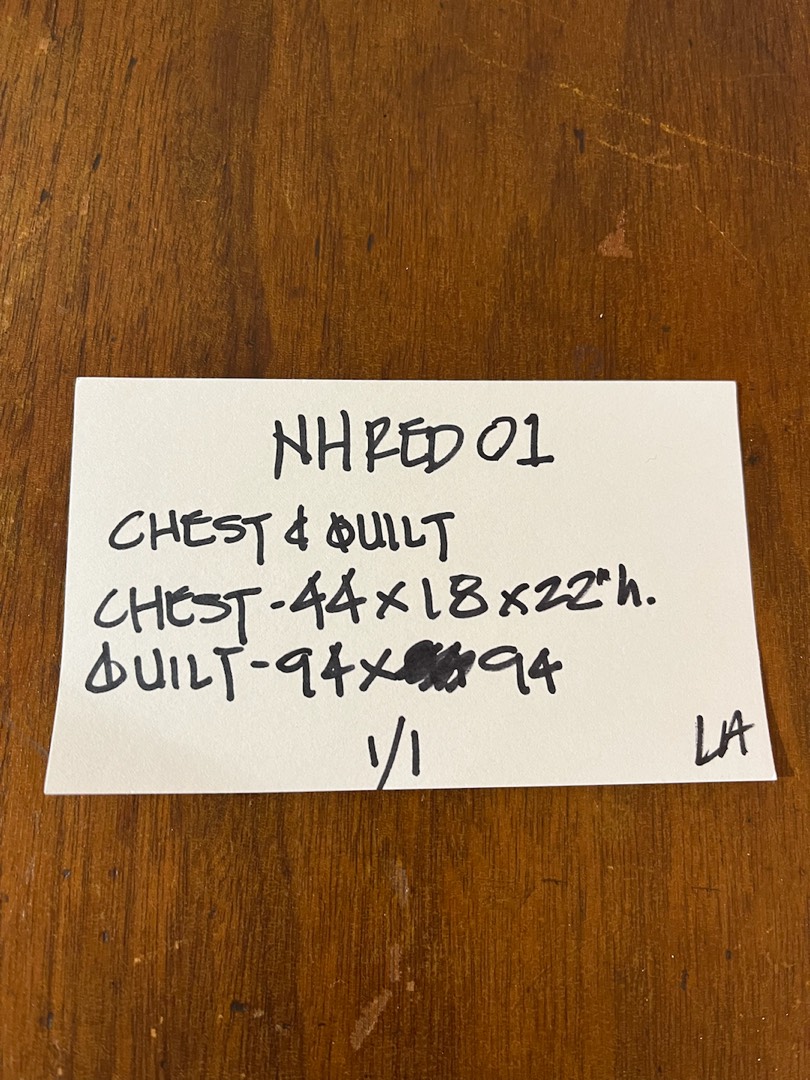 NHRED 01
CHEST & QUILT
CHEST - 44 x 18 x 22" h.
QUILT - 94 x 94
1/1
LA